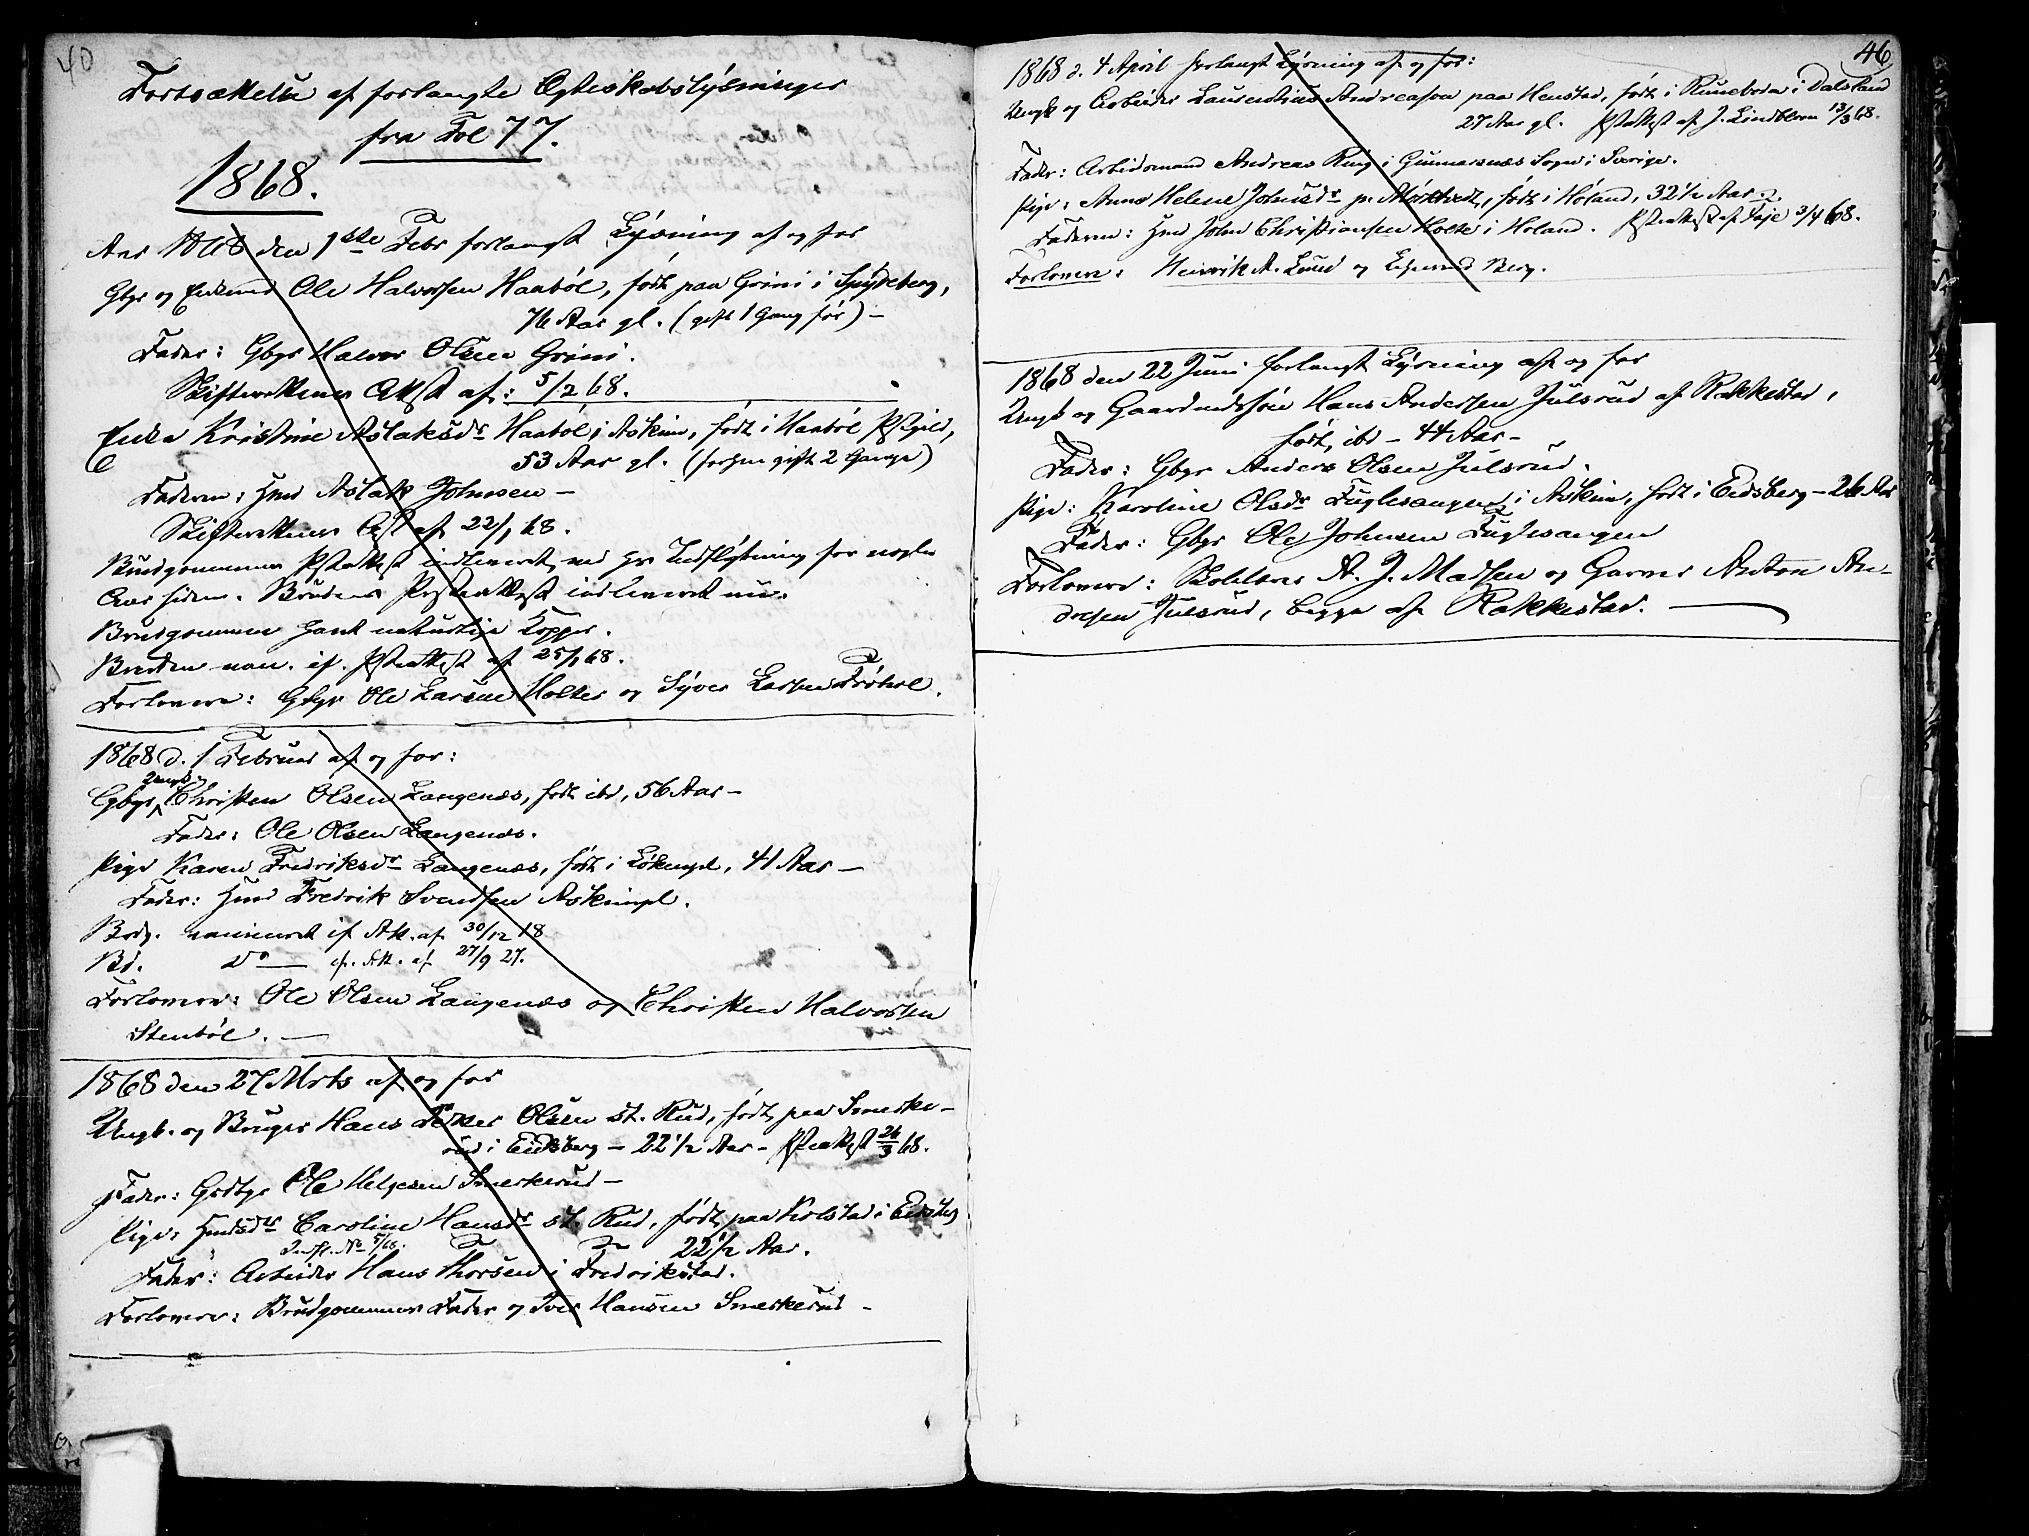 40
Fortsættelse af forlangte Ægteskabslysninger
fra Fol 77.
1868.
Aar 1868 den 1ste Febr forlangt Lysning af og for
Gbgr og Enkemd Ole Halvorsen Haabøl, født paa Grini i Spydeberg,
76 Aar gl. (gift 1 Gang før) –
Fader: Gbgr Halvor Olsen Grini.
Skifterettens Attest af: 5/2 68.
Enke Kristine Aslaksdr Haabøl i Askim, født i Haabøl Pstgjeld,
53 Aar gl. (forhen gift 2 Gange)
Faderen: Hmd Aslak Johnsen –
Skifterettens Att af 22/1 68.
Brudgommens Pstattest indleveret ved hs Indflytning for nogle
Aar siden. Brudens Pstattest indleveret nu.
Brudgommen havt naturlige Kopper.
Bruden vac. if. Pstattest af 25/1 68.
Forlovere: Gbgr Ole Larsen Holter og Syver Larsen Frøhol.
1868 d. 1 Februar af og for:
Ungk.
Gbgr Christen Olsen Langenæs, født ibd, 56 Aar –
Fader: Ole Olsen Langenæs.
Pige Karen Fredriksdr Langenæs, født i Løkengl, 41 Aar –
Fader: Hmd Fredrik Svendsen Askimgl.
Brdg. vaccineret if Att. af 30/12 18
Bd. do — if. Att. af 27/9 27.
Forlovere: Ole Olsen Langenæs og Christen Halvorsen
Stenbøl. —
1868 den 27 Mrts af og for
Ungk. og Bruger Hans Peter Olsen st. Rud, født paa Smerke-
rud i Eidsberg – 22 1/2 Aar – Pstattest 26/3 68.
Fader: Grdbgr Ole Helgesen Smerkerud –
Pige: Hmdsdr Caroline Hansdr st. Rud, født paa Kolstad i Eidsbg
Indfl. No 5/68. 22 1/2 Aar.
Fader: Arbeider Hans Thorsen i Fredrikstad.
Forlovere: Brudgommens Fader og Iver Hansen Smerkerud –
46
1868 d. 4 April forlangt Lysning af og for:
Ungk og Arbeider Laurentius Andreason paa Henstad, født i Runebola i Dalsland
27 Aar gl. Pstattest af J. Lindblom 13/3 68.
Fader: Arbidsmand Andreas Ring i Gunnarsnæs Sogn i Sverige.
Pige: Anne Helene Johnsdr p. Mörktvedt, født i Höland, 32 1/2 Aar.
Faderen: Hmd John Christiansen Holte i Höland. Pstattest af 3/4 68.
Forlovere: Henrik A. Lund og Edvard Berg.
1868 den 22 Juni forlangt Lysning af og for
Ungk og Gaardmdssön Hans Andersen Julsrud af Rakkestad,
født ibd – 44 Aar –
Fader: Gbgr Anders Olsen Julsrud.
Pige: Karoline Olsdr Fuglesangen i Askim, født i Eidsberg – 26 Aar
Fader: Gbgr Ole Johnsen Fuglesangen
Forlovere: Skolelærer A. J. Madsen og Garver Anton An-
dresen Julsrud, begge af Rakkestad. —